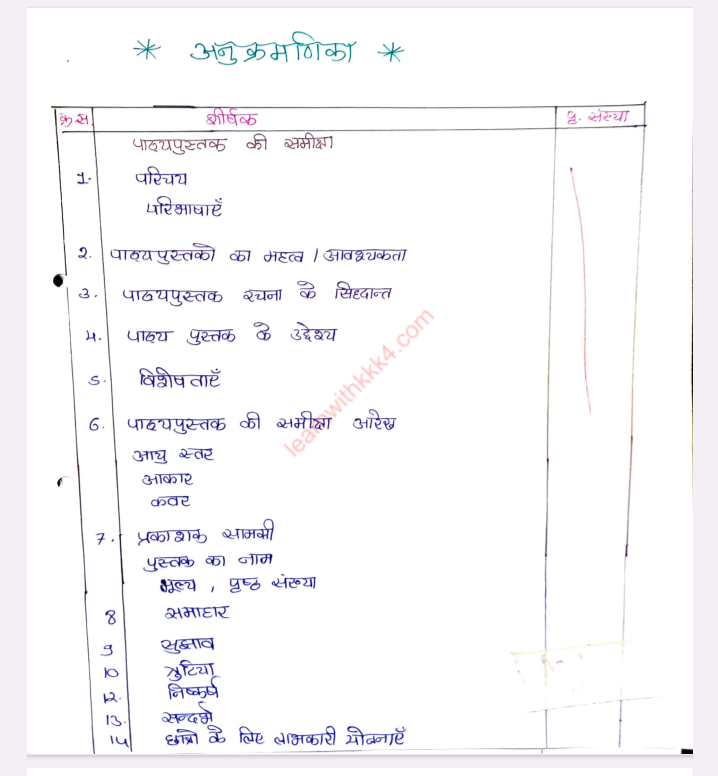 * अनुक्रमणिका *
क्र स. शीर्षक पृ. संख्या
पाठ्यपुस्तक की समीक्षा
1. परिचय
परिभाषाएँ
2. पाठ्यपुस्तको का महत्व / आवश्यकता
3. पाठ्यपुस्तक रचना के सिद्दान्त
4. पाठ्य पुस्तक के उद्देश्य
5. विशेषताएँ
6. पाठ्यपुस्तक की समीक्षा आरेख
आयु स्तर
आकार
कवर
7. प्रकाशक सामग्री
पुस्तक का नाम
मूल्य , पृष्ठ संख्या
8 समाहार
9 सुझाव
10 त्रुटिया
12. निष्कर्ष
13. सन्दर्भ
14 छात्रो के लिए लाभकारी योजनाएँ
learnwithkkk4.com